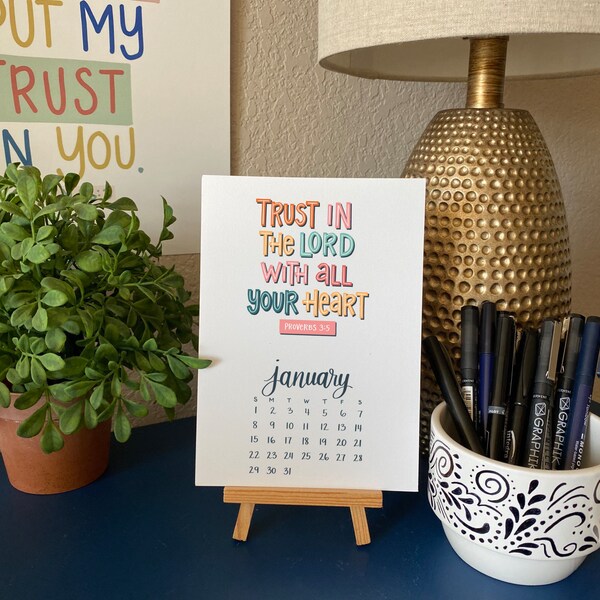 PUT MY
TRUST
IN YOU.
TRUST IN
THE LORD
WITH ALL
YOUR HEART
PROVERBS 3:5
january
S M T W T F S
1 2 3 4 5 6 7
8 9 10 11 12 13 14
15 16 17 18 19 20 21
22 23 24 25 26 27 28
29 30 31
GRAPHIK
MONO